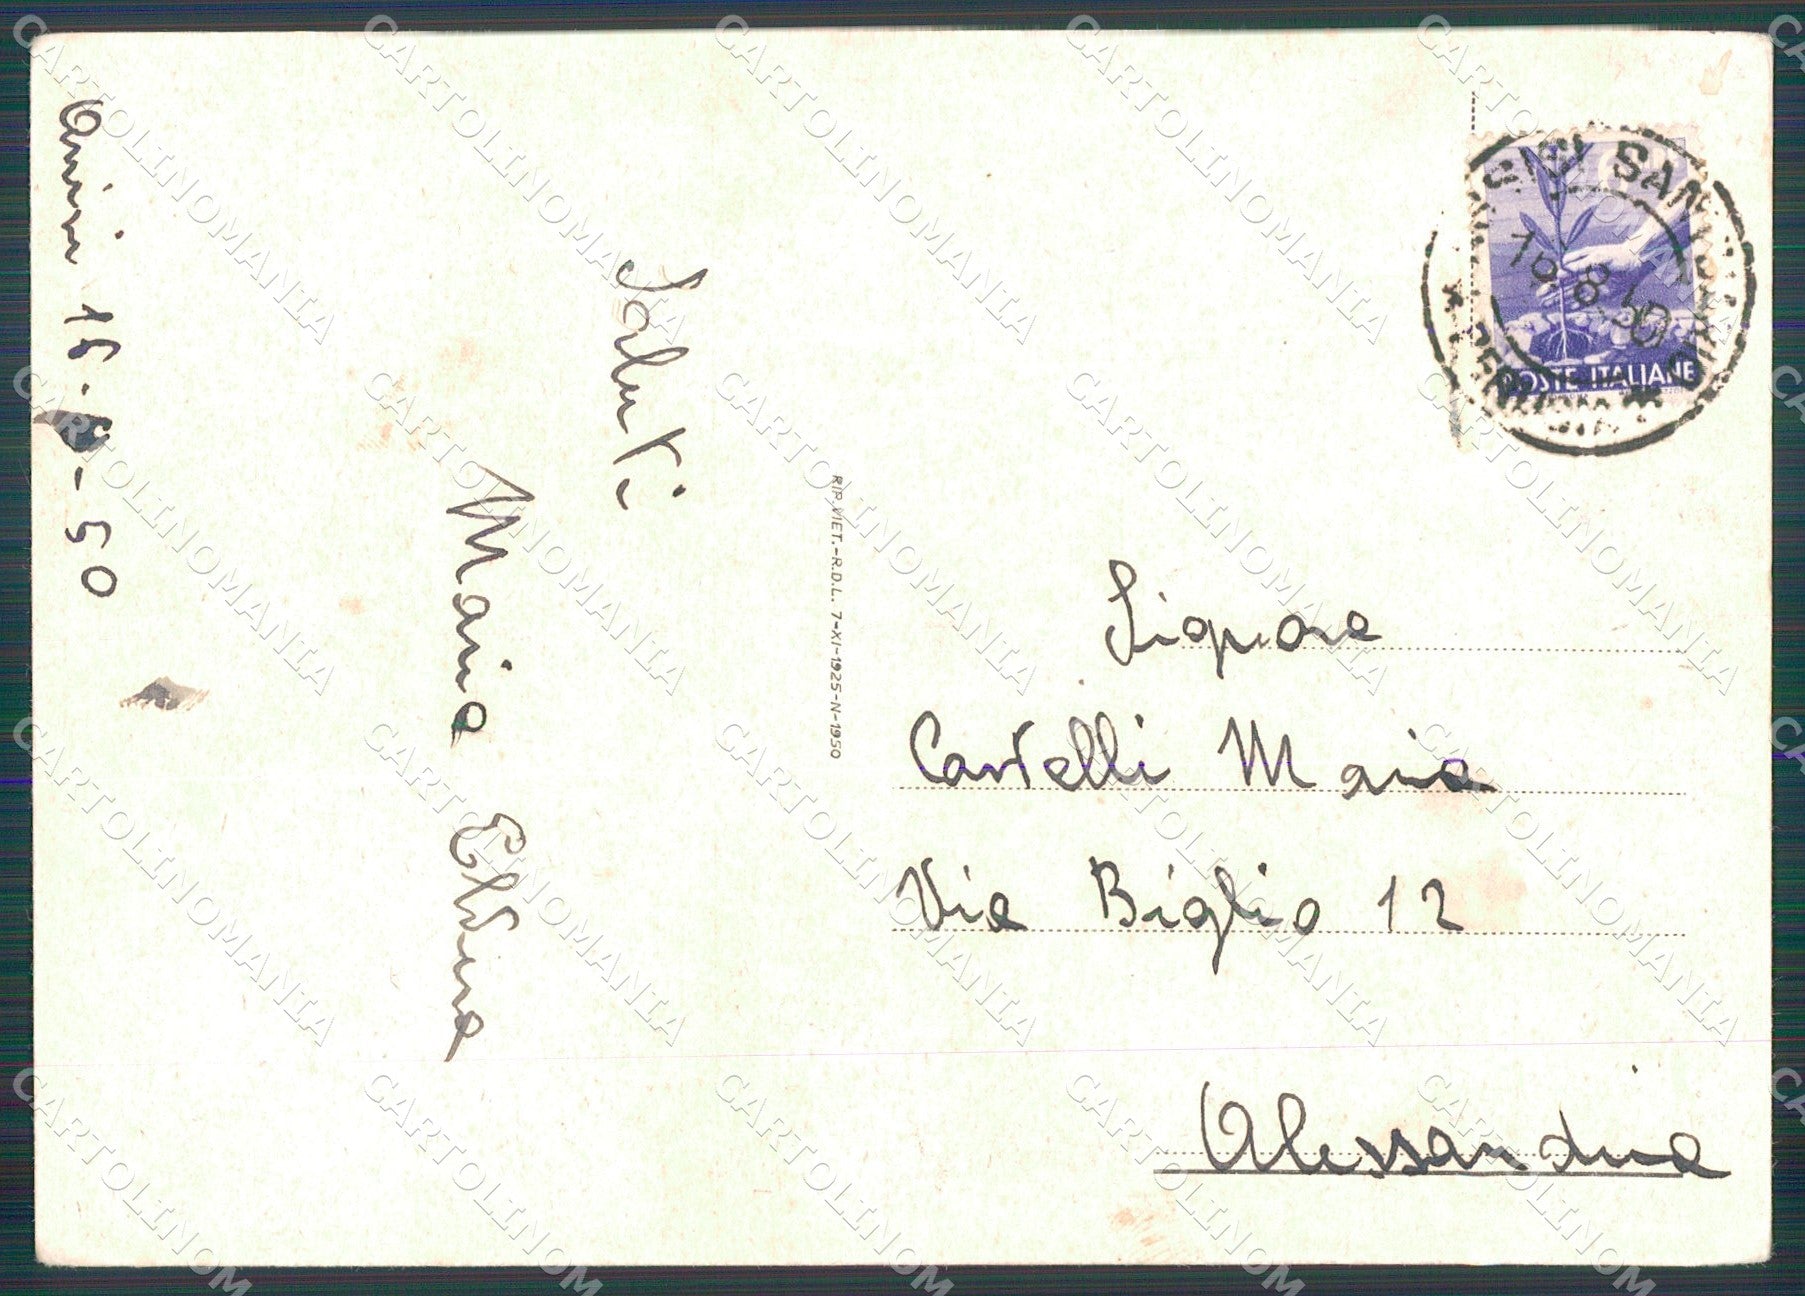 Assisi 16.8-50
Saluti
Maria Eldina
RIP. VIET.-R.D.L. 7-XI-1925-N-1950
SISI SAN
19.8.50
POSTE ITALIANE
Signora
Castelli Maria
Via Biglio 12
Alessandria
CARTOLINOMANIA